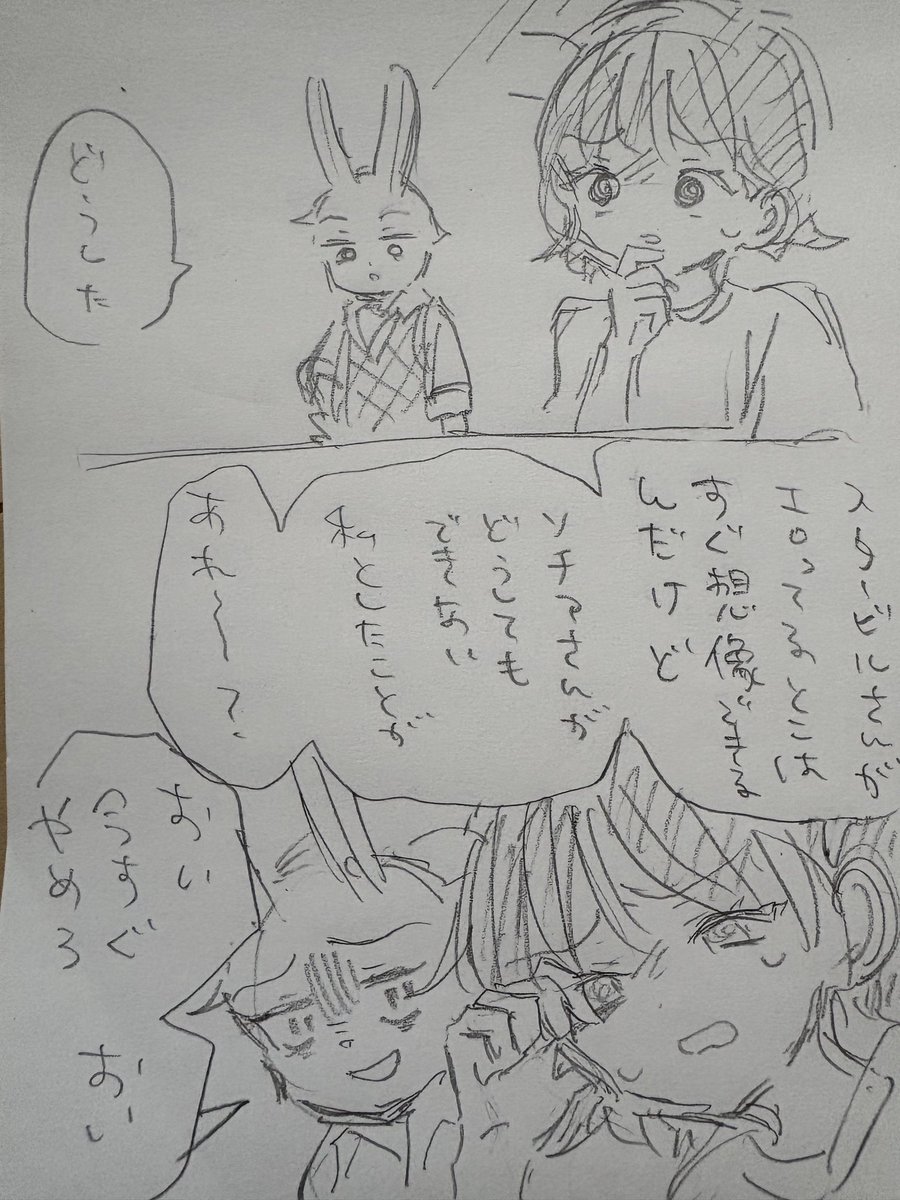 どうした
スタービルさんが
エロってるとこは
すぐ想像できる
んだけど
ソチアさんが
どうしても
できない
私としたことが
あれ〜って、
おい
今すぐ
やめろ
おい